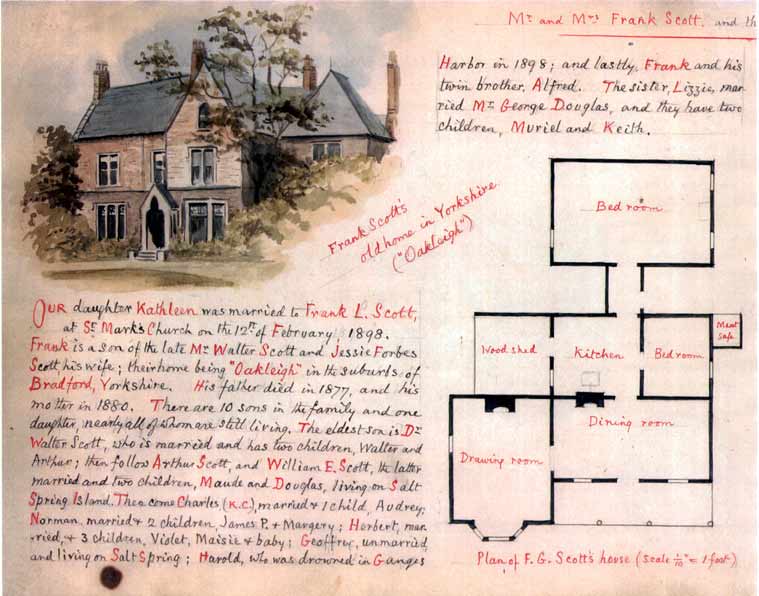 Mr and Mrs Frank Scott, and th
Harbor in 1898; and lastly, Frank and his
twin brother, Alfred. The sister, Lizzie, mar-
ried Mr George Douglas, and they have two
children, Muriel and Keith.
Frank Scott's
old home in Yorkshire
("Oakleigh")
Our daughter Kathleen was married to Frank L. Scott,
at St Mark's Church on the 12th of February 1898.
Frank is a son of the late Mr Walter Scott and Jessie Forbes
Scott his wife; their home being "Oakleigh" in the suburbs of
Bradford, Yorkshire. His father died in 1877, and his
mother in 1880. There are 10 sons in the family and one
daughter, nearly all of whom are still living. The eldest son is Dr
Walter Scott, who is married and has two children, Walter and
Arthur; then follow Arthur Scott, and William E. Scott, the latter
married and two children, Maude and Douglas, living on Salt
Spring Island. Then come Charles (K.C.), married & 1 child, Audrey;
Norman, married & 2 children, James P. & Margery; Herbert, mar-
ried, & 3 children, Violet, Maisie & baby; Geoffrey, unmarried,
and living on Salt Spring; Harold, who was drowned in Ganges
Bed room
Wood shed
Kitchen
Bed room
Meat
Safe
Drawing room
Dining room
Plan of F. G. Scott's house (Scale 1/10" = 1 foot)